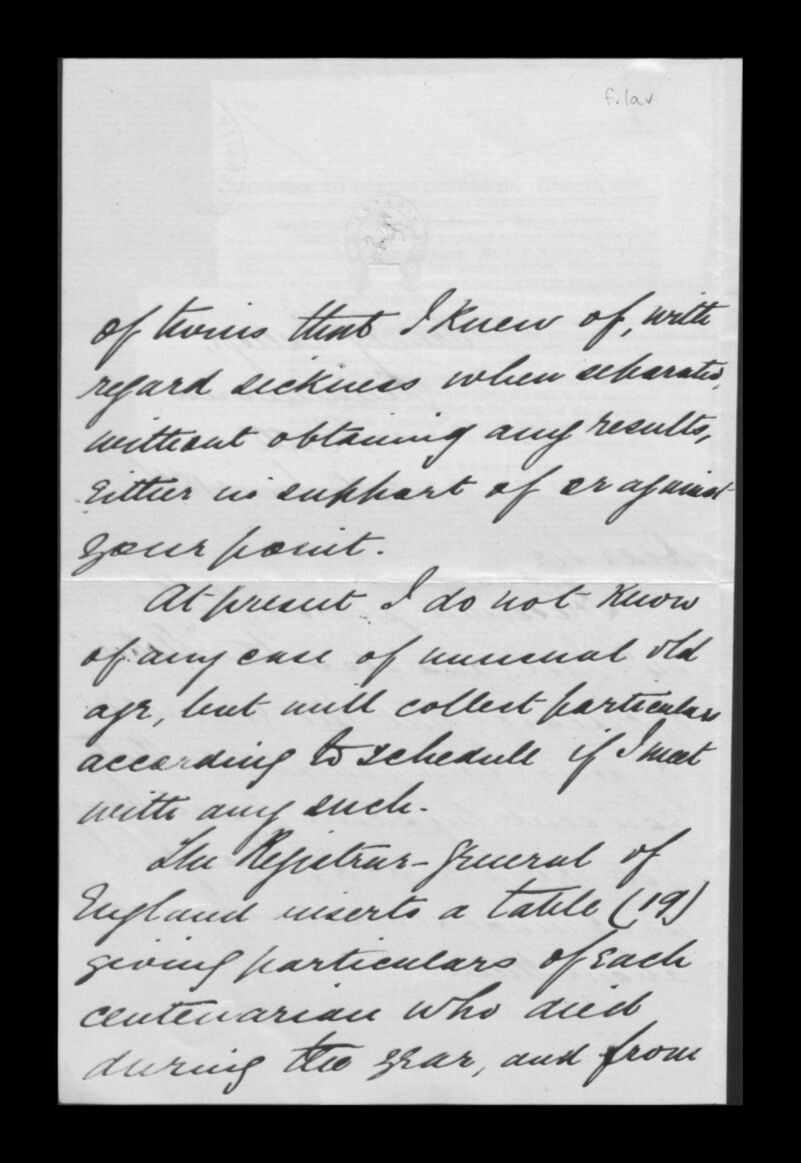 f.1av
of twins that I knew of, with
regard sickness when separated,
without obtaining any results,
either in support of or against
your point.
At present I do not know
of any case of unusual old
age, but will collect particulars
according to schedule if I meet
with any such.
The Registrar-General of
England inserts a table (19)
giving particulars of each
centenarian who died
during the year, and from